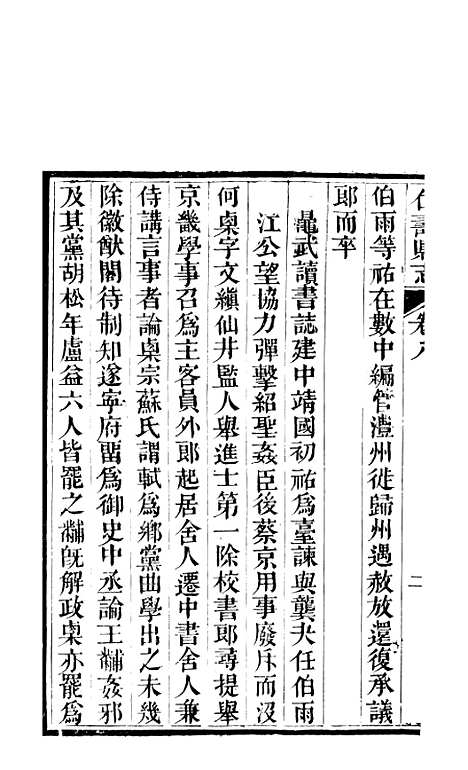 仁壽縣志 卷八 二
伯雨等祐在數中編管澧州徙歸州遇赦放還復承議
郎而卒
鼂武讀書誌建中靖國初祐爲臺諫與龔夬任伯雨
江公望協力彈擊紹聖姦臣後蔡京用事廢斥而沒
何㮚字文縝仙井監人舉進士第一除校書郎尋提舉
京畿學事召爲主客員外郎起居舍人遷中書舍人兼
侍講言事者論㮚宗蘇氏謂軾爲鄉黨曲學出之未幾
除徽猷閣待制知遂寧府畱爲御史中丞論王黼姦邪
及其黨胡松年盧益六人皆罷之黼旣解政㮚亦罷爲